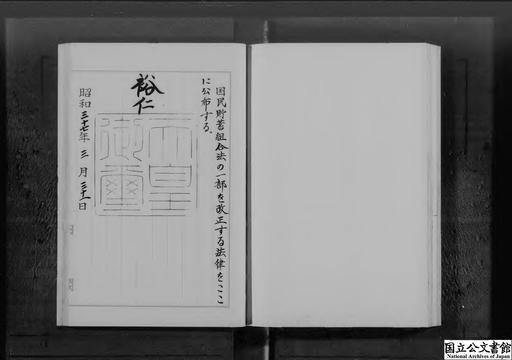 国民貯蓄組合法の一部を改正する法律をここ
に公布する。
裕仁
天皇
御璽
昭和三十七年三月三十一日
国立公文書館
National Archives of Japan